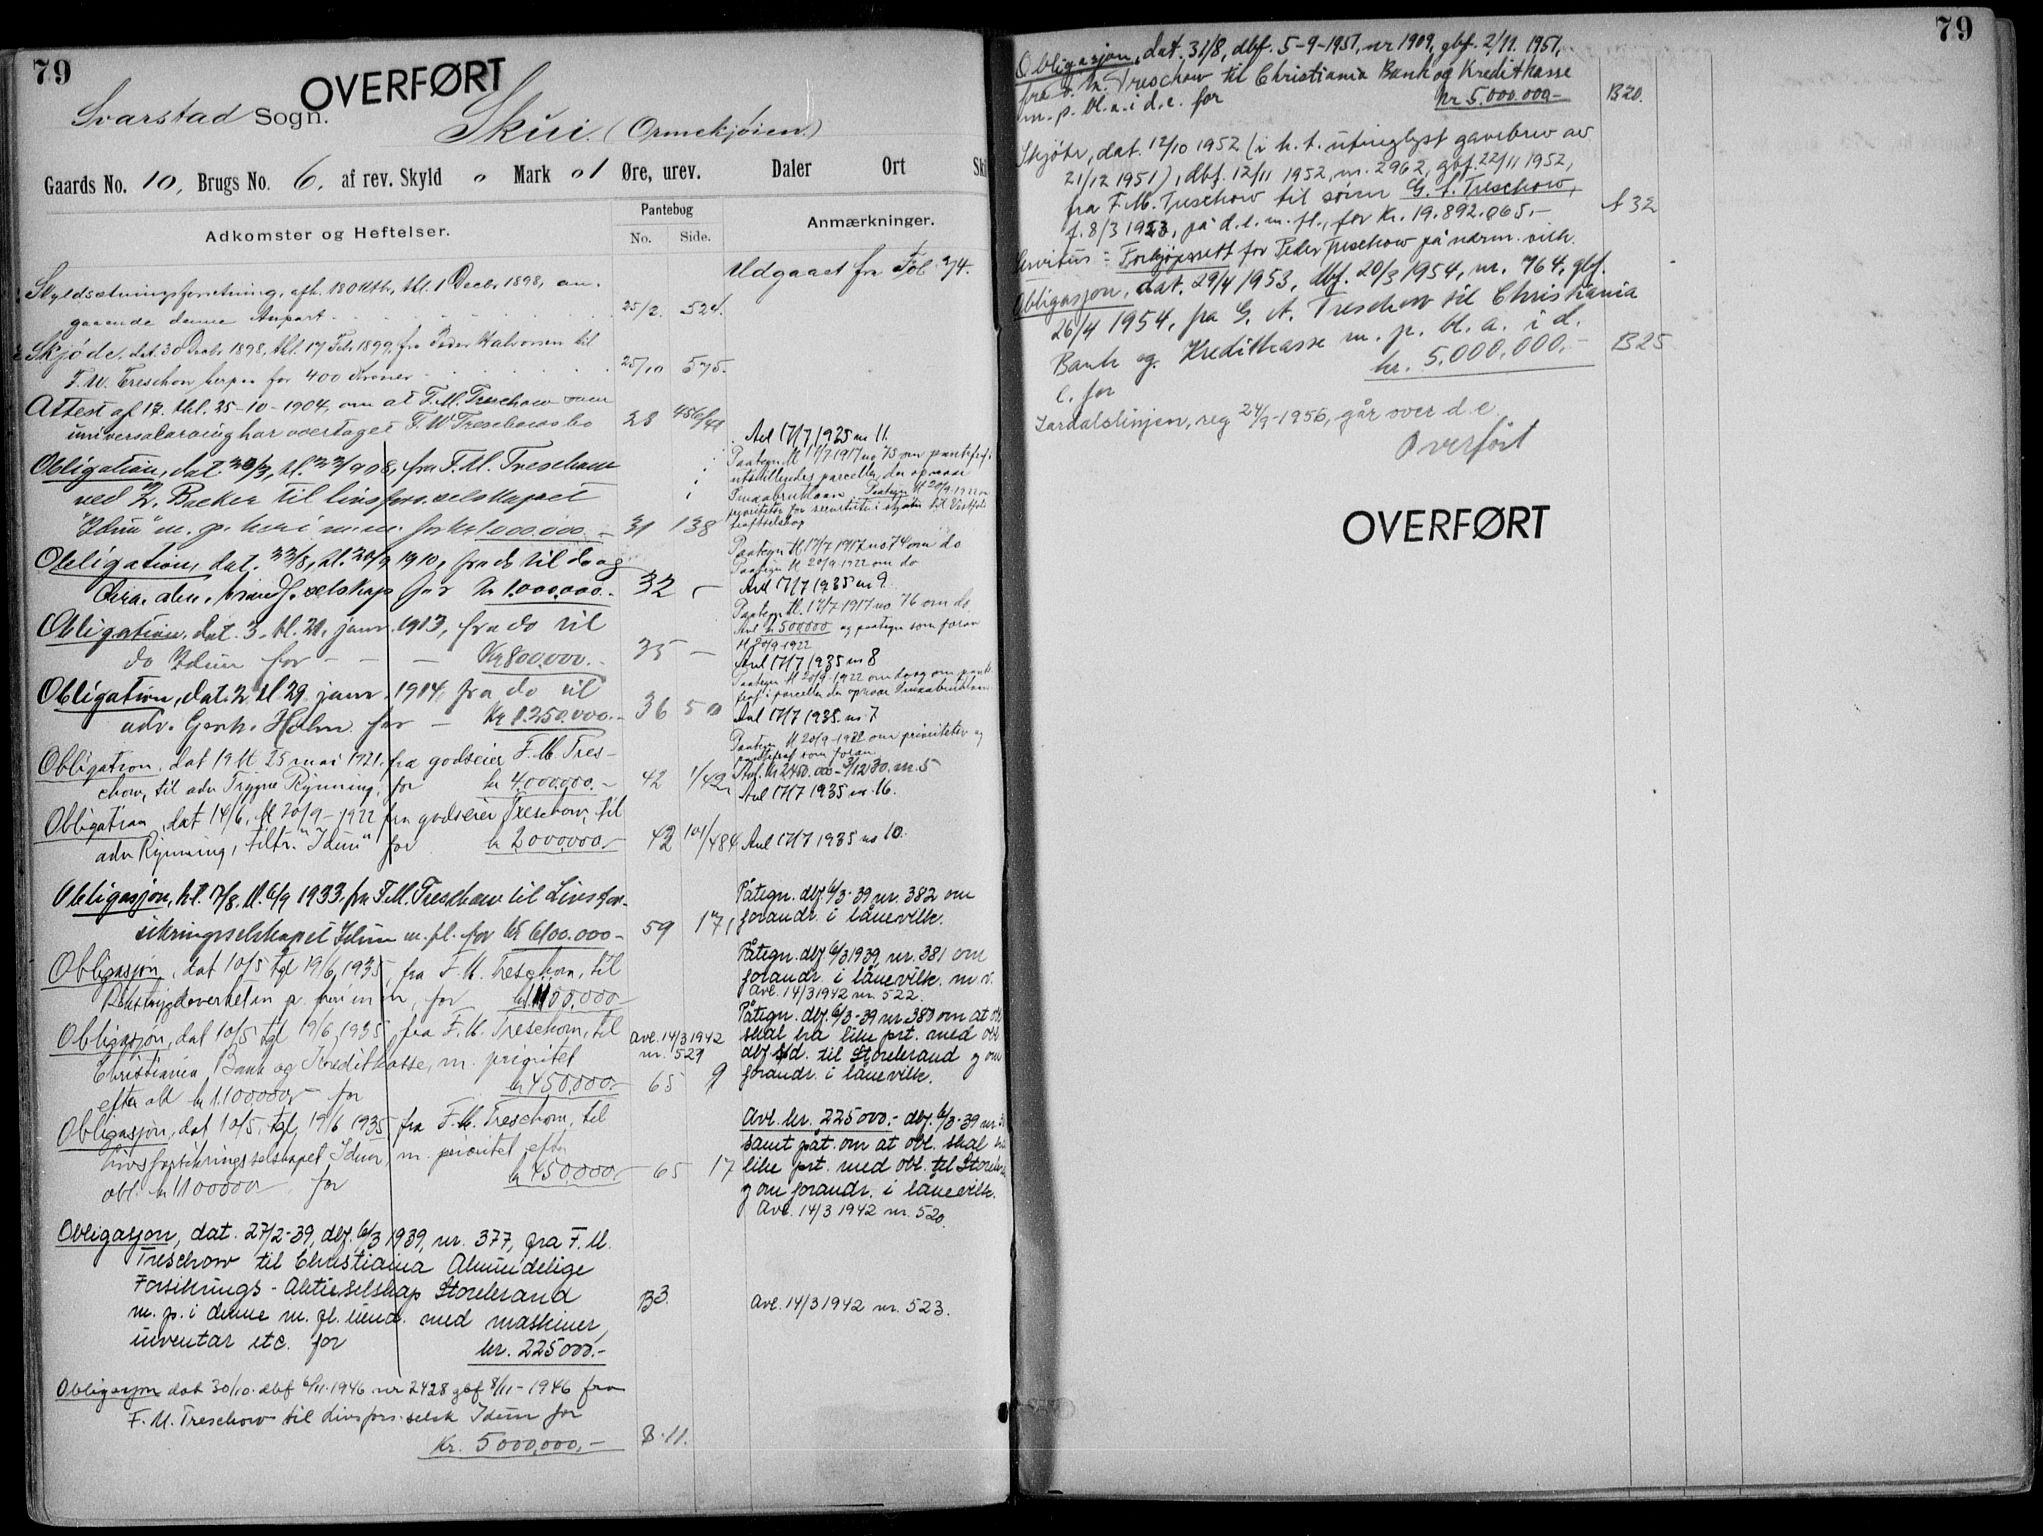 79
OVERFØRT
Svarstad Sogn.
Skui (Ormekjøien)
Gaards No. 10, Brugs No. 6. af rev. Skyld o Mark 01 Øre, urev. Daler Ort
Adkomster og Heftelser.
Pantebog
No. Side.
Anmærkninger.
Udgaaet fra Fol. 74.
Skyldsætningsforretning, afh. 18 Oktbr, thl. 1 Decb. 1898, an-
gaaende denne Anpart 25/2. 524.
Skjøde, dat. 30 Decb. 1898, thl. 17 Feb. 1899, fra Peder Halvorsen til
F. W. Treschow, herpaa for 400 Kroner 25/10 575.
Attest af 17. thl. 25-10-1904, om at F. M. Treschow som
universalarving har overtaget F W Treschows bo 28 456/
Obligation, dat. fra F. M. Treschow
ved Z. Backer til livsfors.selskapet
"Idun" m. p. heri m. m. for kr 1000.000.- 31 138
Avl 17/7 1935 nr 11.
Obligation, dat. 23/8, tl. 20/9 1910, fra do til do og
brandf. selskap for kr 1.000.000.- 32 -
Paategn tl 17/7 1917 no 74 om do
Paategn tl 20/9 1922 om do
Avl 17/7 1935 nr 9.
Obligation, dat. 3. tl. 21. janr. 1913, fra do til
do Idun for - - - Kr 800.000.- 35 -
Paategn tl. 17/7 1917 no 76 om do
Avl kr 500000 og paategn som foran
tl 20/9-1922
Avl 17/7 1935 nr 8
Obligation, dat. 2 tl 29. janr. 1914, fra do til
adv. Gerh. Holm for - Kr 1.250.000.- 36 50
Avl 17/7 1935 nr. 7
Obligation, dat 19 tl 25 mai 1921, fra godseier F. M Tres-
chow, til adv Trygve Rynning, for kr 4.000.000.- 42 1/42
Paategn tl 20/9-1922 om prioritet og
pantefraf. som foran.
Avl. kr 2450.000 - 3/12 30. nr. 5
Avl 17/7 1935 nr. 16.
Obligation, dat 14/6, tl 20/9-1922 fra godseier Treschow, til
adv Rynning, tiltr. "Idun" for kr 2000.000.- 42 101/484 Avl 17/7 1935 no 10.
Obligasjon, dat. 17/8. tl. 6/9 1933, fra F. M. Treschow til Livsfor-
sikringsselskapet Idun m. fl. for kr 6100.000- 59 171
Påtegn. dbf 6/3-39 nr. 382 om
forandr. i lånevilk.
Obligasjon, dat 10/5 tgl 19/6 1935, fra F. M. Treschow, til
p. heri m m, for kr 1100.000-
Påtegn. dbf 6/3 1939, nr. 381 om
forandr. i lånevilk. m v.
Avl. 14/3 1942 nr. 522.
Obligasjon, dat 10/5 tgl 19/6 1935, fra F. M. Treschow, til
Christiania Bank og Kreditkasse, m. prioritet
efter obl kr 1.100000,- for kr 450.000,- 65 9
Avl. 14/3 1942
nr. 521
Påtegn. dbf. 6/3-39 nr 383 om at obl
skal ha like prt. med obl
dbf s/d. til Storebrand og om
forandr. i lånevilk.
Obligasjon, dat 10/5, tgl, 19/6 1935 fra F. M. Treschow, til
Livsforsikringsselskapet Idun, m. prioritet efter
obl. kr 1100000 for kr 450.000.- 65 17
Avl. kr. 225000.- dbf. 6/3-39 nr 3
samt påt. om at obl. skal ha
like prt. med obl. til Storebr
og om forandr. i lånevilk.
Avl. 14/3 1942 nr. 520.
Obligasjon, dat. 27/2-39, dbf. 6/3 1939, nr. 377, fra F. M.
Treschow til Christiania Almindelige
Forsikrings-Aktieselskap Storebrand
m. p. i denne m. fl. eiend. med maskiner,
inventar etc. for kr. 225000.- B3. Avl. 14/3 1942 nr. 523.
Obligasjon dat 30/10. dbf 6/11-1946 nr 2428 gbf 8/11-1946 fra
F. M. Treschow til livsfors.selsk Idun for
Kr. 5000.000.- B.11.
79
Obligasjon, dat. 31/8, dbf. 5-9-1951, nr 1909, gbf. 2/11. 1951,
fra F. M. Treschow til Christiania Bank og Kreditkasse
m. p. bl. a. i d. e. for kr 5.000.000- B20.
Skjøte, dat. 12/10 1952 (i h. t. utinglyst gavebrev av
21/12 1951), dbf. 12/11 1952, nr. 2962, gbf. 22/11 1952,
fra F. M. Treschow til sønn G. A. Treschow,
f. 8/3 1923, på d. e. m. fl., for kr. 19.892.065.- A 32
Servitus: Forkjøpsrett for Peder Treschow på nærm. vilk.
Obligasjon, dat. 29/4 1953, dbf. 20/3 1954, nr. 764, gbf.
26/4 1954, fra G. A. Treschow til Christiania
Bank og Kreditkasse m. p. bl. a. i d.
e. for kr. 5.000.000.- B25
Lardalslinjen, reg 24/9-1956, går over d.e.
Overført
OVERFØRT